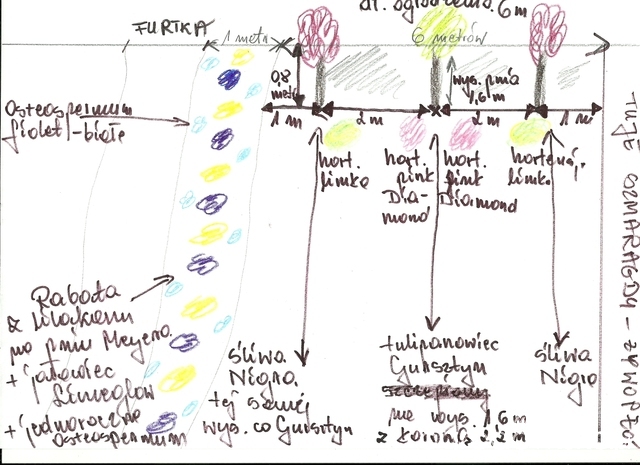 dł. ogrodzenia 6m
FURTKA
1 metr
6 metrów
0,8 metr
wys. pnia 1,6 m
1 m
2 m
2 m
1 m
Osteospermum
fiolet/-białe
hort. limka
hort. pink Diamond
hort. pink Diamond
hortensj. limk.
Rabata
z lilakiem
na pniu Meyera
+ jałowiec
Limeglow
+ jednoroczne
osteospermum
śliwa
Nigra
tej samej
wys. co Gursztyn
tulipanowiec
Gursztyn
na wys. 1,6 m
z koroną 2,2 m
śliwa
Nigra
TUJE SZMARAGDY - ŻYWOPŁOT